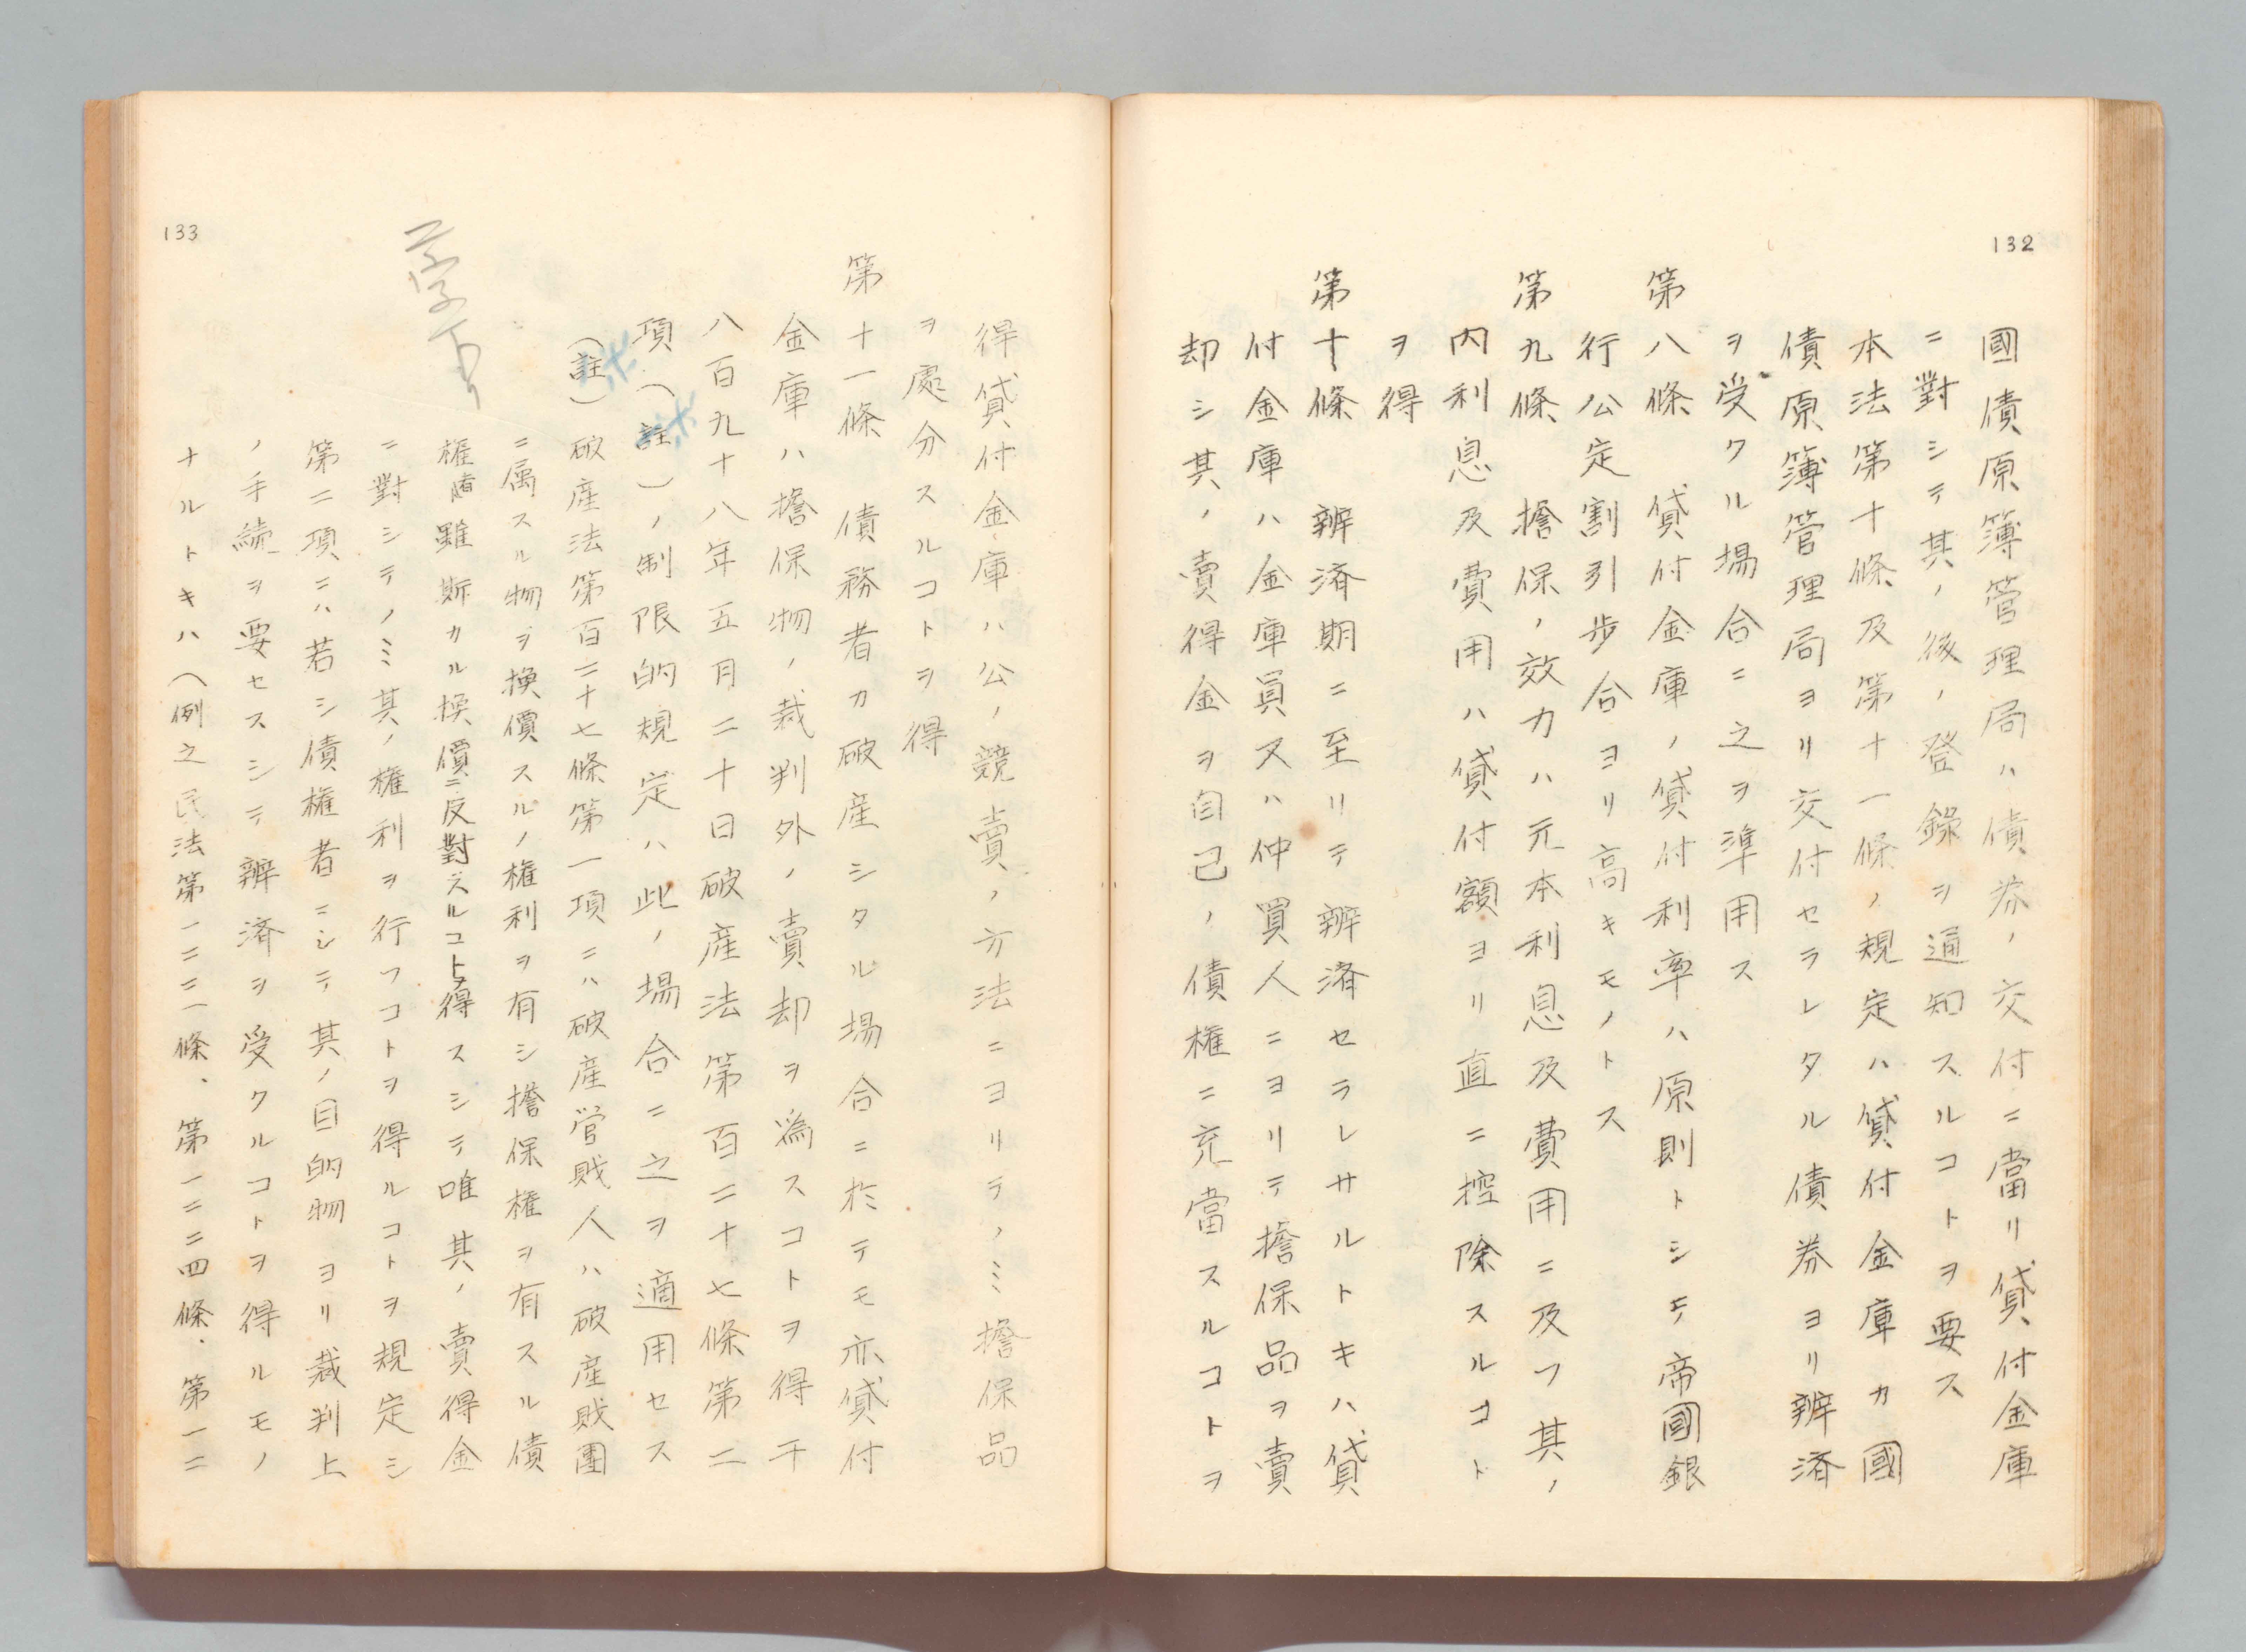 132
國債原簿管理局ハ債券ノ交付ニ當リ貸付金庫
ニ對シテ其ノ後ノ登錄ヲ通知スルコトヲ要ス
本法第十條及第十一條ノ規定ハ貸付金庫カ國
債原簿管理局ヨリ交付セラレタル債券ヨリ辨済
ヲ受クル場合ニ之ヲ準用ス
第八條　貸付金庫ノ貸付利率ハ原則トシテ帝國銀
行公定割引歩合ヨリ高キモノトス
第九條　擔保ノ效力ハ元本利息及費用ニ及フ其ノ
内利息及費用ハ貸付額ヨリ直ニ控除スルコト
ヲ得
第十條　辨済期ニ至リテ辨済セラレサルトキハ貸
付金庫ハ金庫員又ハ仲買人ニヨリテ擔保品ヲ賣
却シ其ノ賣得金ヲ自己ノ債権ニ充當スルコトヲ
得貸付金庫ハ公ノ競賣ノ方法ニヨリテノミ擔保品
ヲ處分スルコトヲ得
第十一條　債務者カ破産シタル場合ニ於テモ亦貸付
金庫ハ擔保物ノ裁判外ノ賣却ヲ為スコトヲ得千
八百九十八年五月二十日破産法第百二十七條第二
項（註）ノ制限的規定ハ此ノ場合ニ之ヲ適用セス
（註）破産法第百二十七條第一項ニハ破産管財人ハ破産財團
ニ属スル物ヲ換價スルノ権利ヲ有シ擔保権ヲ有スル債
権者雖斯カル換價ニ反對スルコトヲ得スシテ唯其ノ賣得金
ニ對シテノミ其ノ権利ヲ行フコトヲ得ルコトヲ規定シ
第二項ニハ若シ債権者ニシテ其ノ目的物ヨリ裁判上
ノ手続ヲ要セスシテ辨済ヲ受クルコトヲ得ルモノ
ナルトキハ（例之民法第一二二一條、第一二二四條、第一二
133